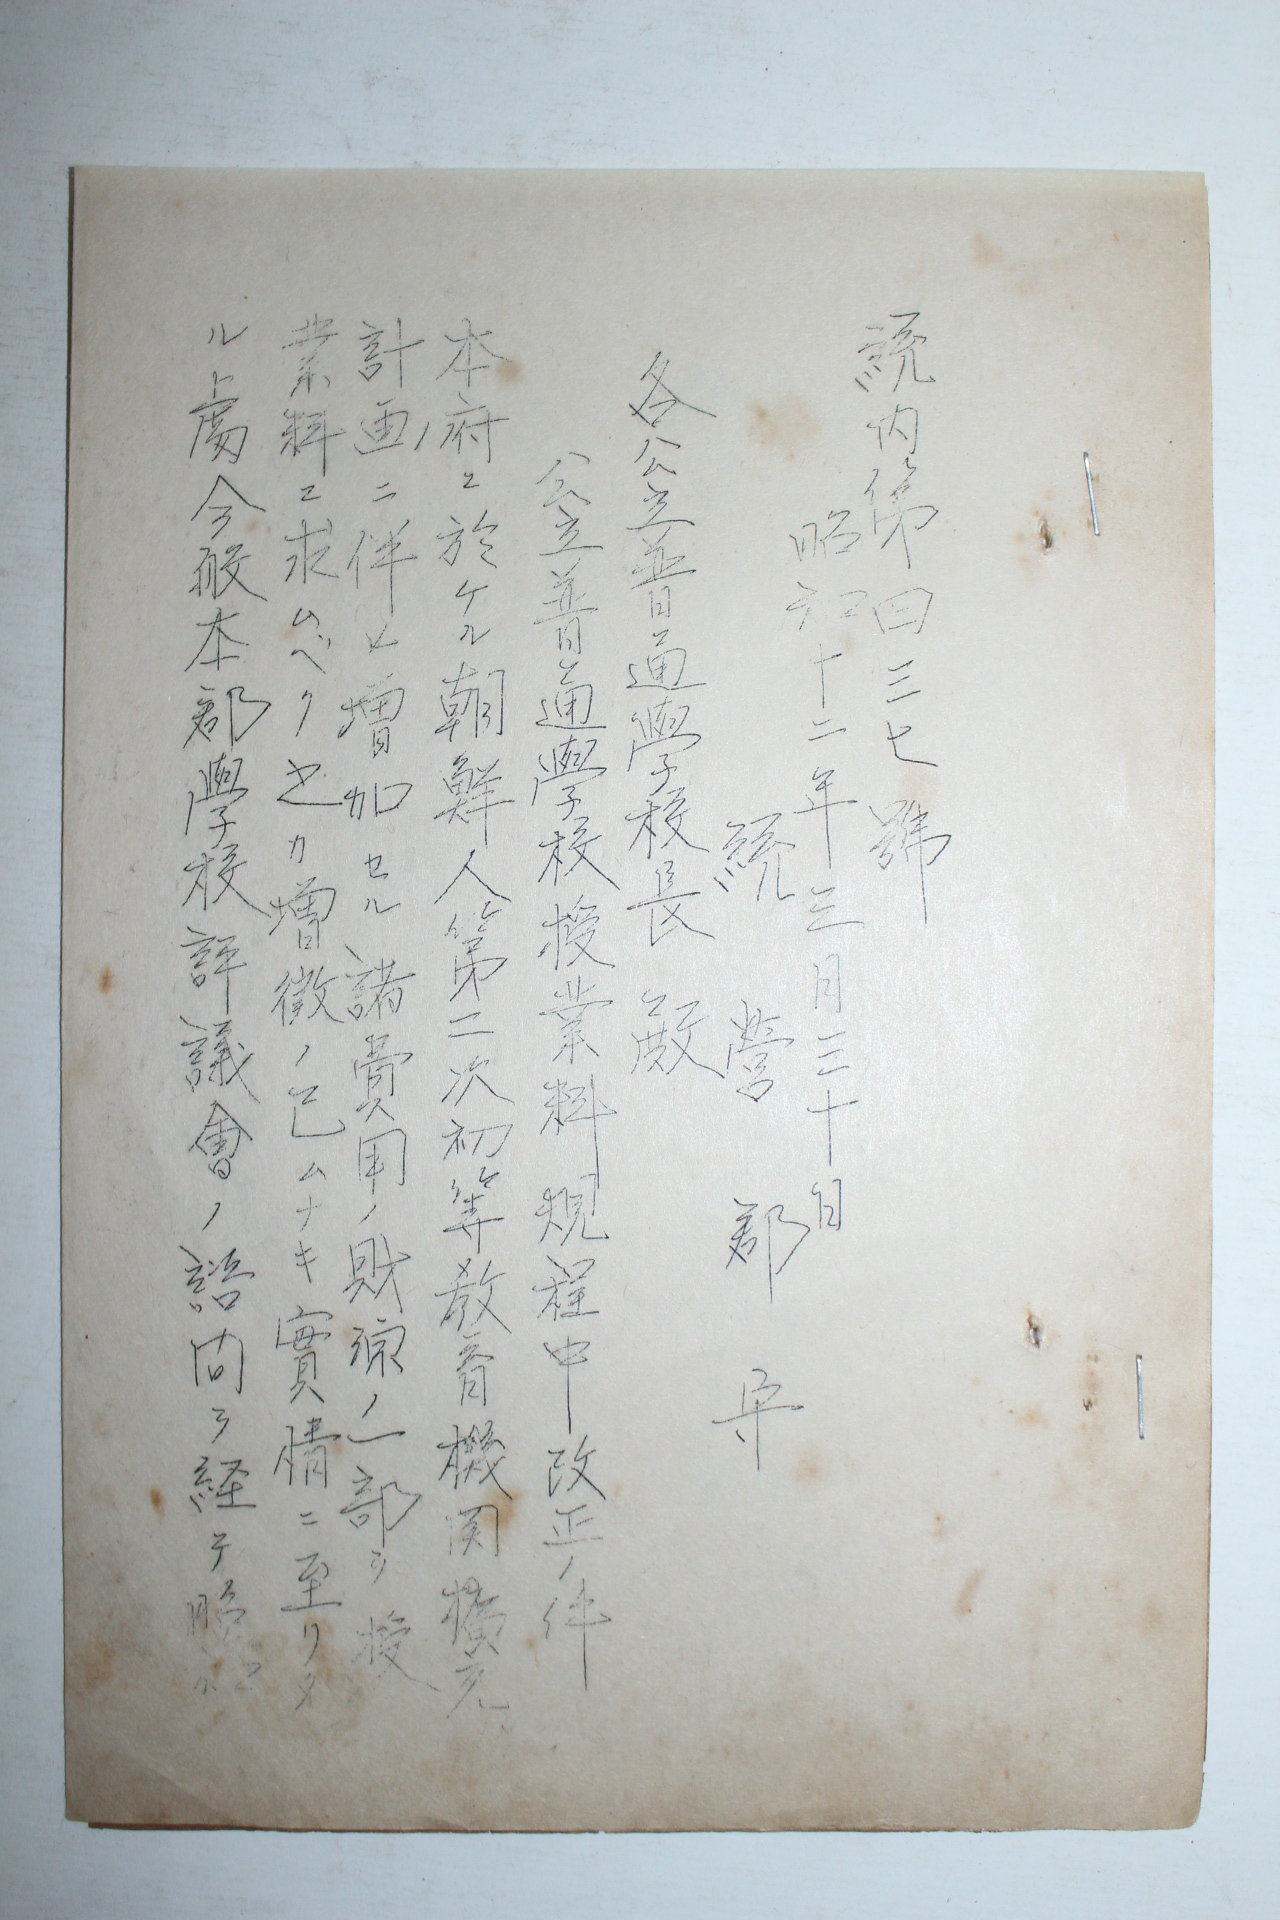 統內第四三七號
昭和十二年三月三十日
統營郡守
各公立普通學校長 殿
公立普通學校授業料規程中改正ノ件
本府ニ於ケル朝鮮人第二次初等教育機関擴充
計画ニ伴ヒ増加セル諸費用ノ財源ノ一部ヲ授
業料ニ求ムベク之カ増徴ノ已ムナキ實情ニ至リタ
ル處今般本郡學校評議會ノ諮問ヲ経テ